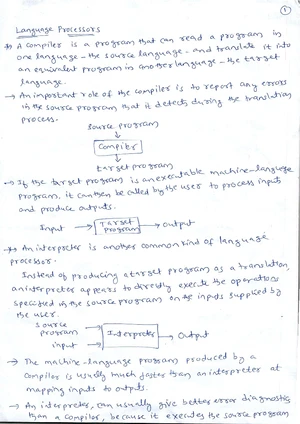 1
Language Processors
* A compiler is a program that can read a program in
one language - the source language - and translate it into
an equivalent program in another language - the target
language.
→ An important role of the compiler is to report any errors
in the source program that it detects during the translation
process.
source program
↓
Compiler
↓
target program
→ If the target program is an executable machine-language
program, it can then be called by the user to process inputs
and produce outputs.
Input → Target Program → output
* An interpreter is another common kind of language
processor.
Instead of producing a target program as a translation,
an interpreter appears to directly execute the operations
specified in the source program on the inputs supplied by
the user.
source
program → Interpreter → Output
input →
→ The machine-language program produced by a
compiler is usually much faster than an interpreter at
mapping inputs to outputs.
→ An interpreter, can usually give better error diagnostics
than a compiler, because it executes the source program